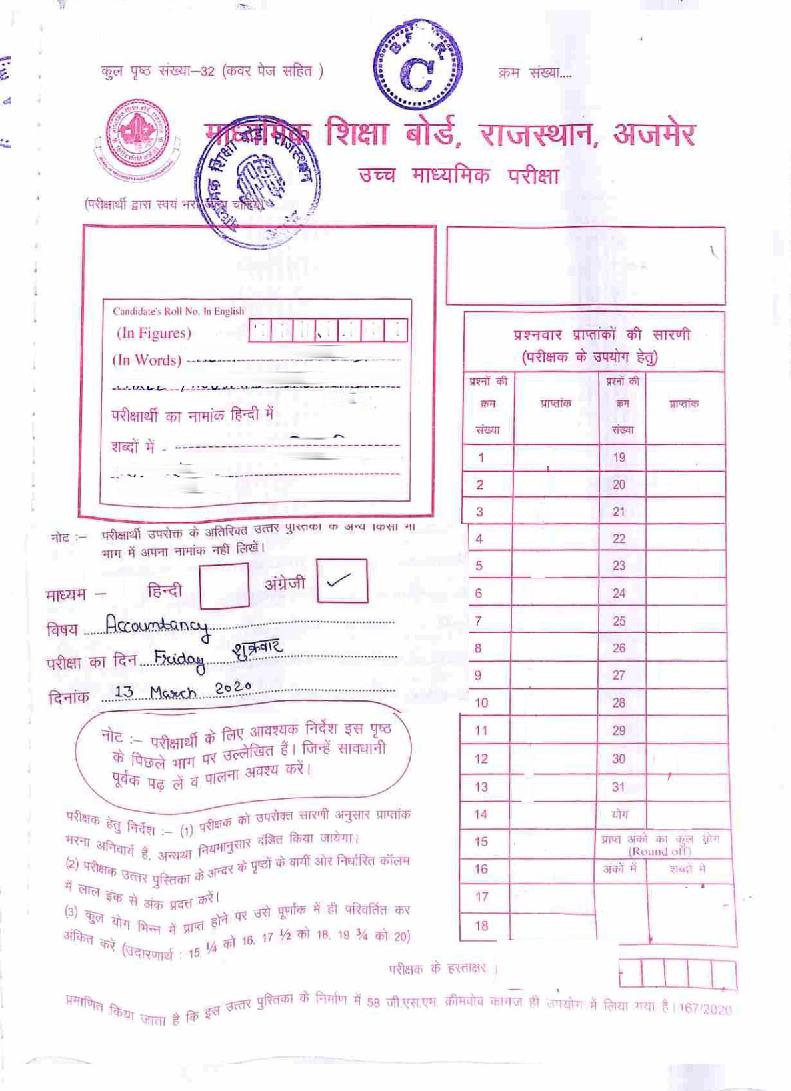 कुल पृष्ठ संख्या–32 (कवर पेज सहित )
B.F. R.
C
क्रम संख्या....
माध्यमिक शिक्षा बोर्ड, राजस्थान, अजमेर
उच्च माध्यमिक परीक्षा
(परीक्षार्थी द्वारा स्वयं भरा
Candidate's Roll No. In English
(In Figures)
(In Words)
परीक्षार्थी का नामांक हिन्दी में
शब्दों में
नोट :– परीक्षार्थी उपरोक्त के अतिरिक्त उत्तर पुस्तिका के अन्य किसी भी
भाग में अपना नामांक नहीं लिखें।
माध्यम – हिन्दी अंग्रेजी ✓
विषय Accountancy
परीक्षा का दिन Friday शुक्रवार
दिनांक 13 March 2020
नोट :– परीक्षार्थी के लिए आवश्यक निर्देश इस पृष्ठ
के पिछले भाग पर उल्लेखित हैं। जिन्हें सावधानी
पूर्वक पढ़ लें व पालना अवश्य करें।
परीक्षक हेतु निर्देश :– (1) परीक्षक को उपरोक्त सारणी अनुसार प्राप्तांक
भरना अनिवार्य है, अन्यथा नियमानुसार दंडित किया जायेगा।
(2) परीक्षक उत्तर पुस्तिका के अन्दर के पृष्ठों के बायीं ओर निर्धारित कॉलम
में लाल इंक से अंक प्रदत्त करें।
(3) कुल योग भिन्न में प्राप्त होने पर उसे पूर्णांक में ही परिवर्तित कर
अंकित करें (उदारणार्थ : 15 ¼ को 16, 17 ½ को 18, 19 ¾ को 20)
प्रश्नवार प्राप्तांकों की सारणी
(परीक्षक के उपयोग हेतु)
प्रश्नों की क्रम संख्या प्राप्तांक प्रश्नों की क्रम संख्या प्राप्तांक
1 19
2 20
3 21
4 22
5 23
6 24
7 25
8 26
9 27
10 28
11 29
12 30
13 31
14 योग
15 प्राप्त अंकों का कुल योग
(Round off)
16 अंकों में शब्दों में
17
18
परीक्षक के हस्ताक्षर
प्रमाणित किया जाता है कि इस उत्तर पुस्तिका के निर्माण में 58 जी.एस.एम. क्रीमवोव कागज ही उपयोग में लिया गया है। 167/2020